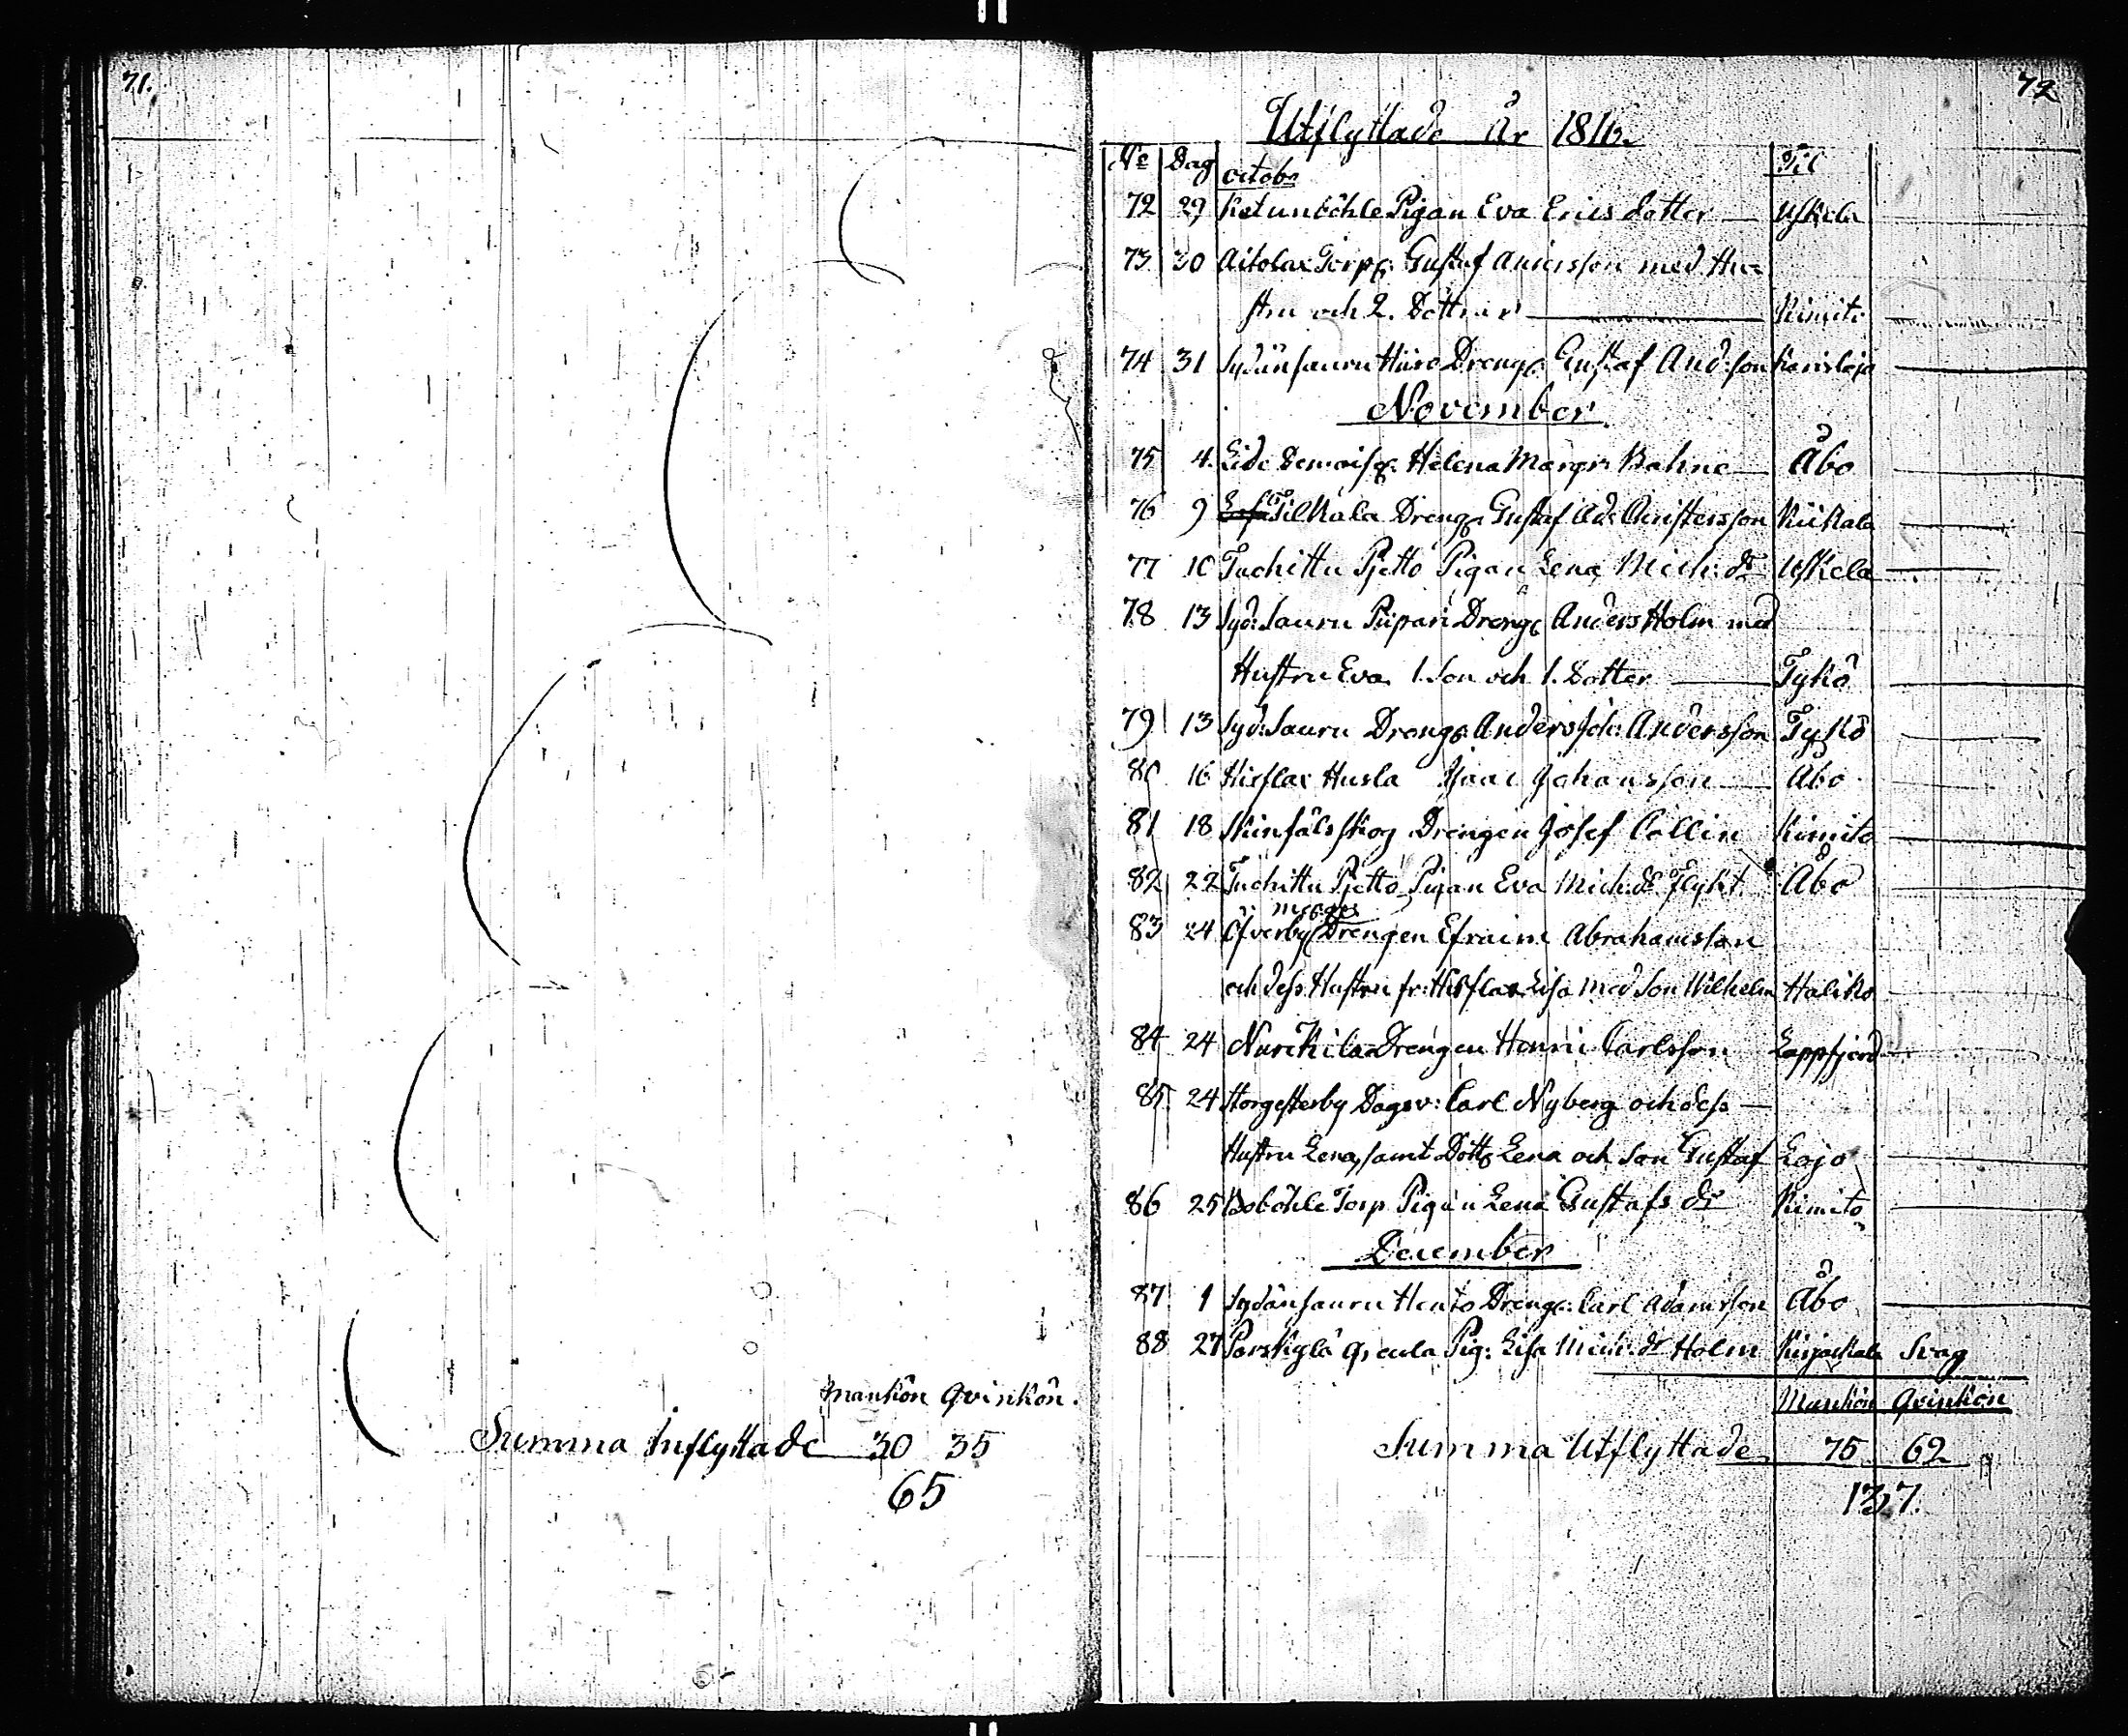 71.
Mankön Qvinkön.
Summa Inflyttade 30 35
65
72
Utflyttade År 1816.
No Dag octobr Til
72 29 Ketunböhle Pigan Eva Erics dotter Uskela
73 30 Aitolax Torp: Gustaf Andersson med Hu=
stru och 2. Döttrar Kimito
74 31 Sydänsauru Hiiro Dreng: Gustaf And:son Karislojo
November
75 4. Demois: Helena Margr: Bahne Åbo
76 9 Tilkala Dreng: Gustaf Ad: Kiikala
77 10 Tuohittu Pjetto Pigan Lena Mich: dr Uskela
78 13 Syd:sauru Piipari Dreng: Anders Holm med
Hustru Eva 1. Son och 1. Dotter Tykö
79 13 Syd:sauru Dreng: Anders Joh: Andersson Tykö
80 16 Hisflax Husla Isaac Johansson Åbo
81 18 Skinfälsskog Drengen Josef Collin Kimito
82 22 Tuohittu Pjetto Pigan Eva Mich: dr Flykt Åbo
83 24 Öfverby Måges Drengen Efraim Abrahamsson
och dess Hustru fr: Hisflax Lisa med Son Wilhelm Haliko
84 24 Nurikila Drengen Henric Carlsson Lappfjerd
85. 24 Storgesterby Dagsv: Carl Nyberg och dess
Hustru Lena, samt Dott: Lena och Son Gustaf Lojo
86 25 Boböhle Torp Pigan Lena Gustafs dr Kimito
December
87 1 Sydänsauru Hento Dreng: Carl Adamsson Åbo
88 27 Parskylä Pig: Lisa Mich: dr Holm Kirjackala Svag
Mankön Qvinkön
Summa Utflyttade 75 62
137.